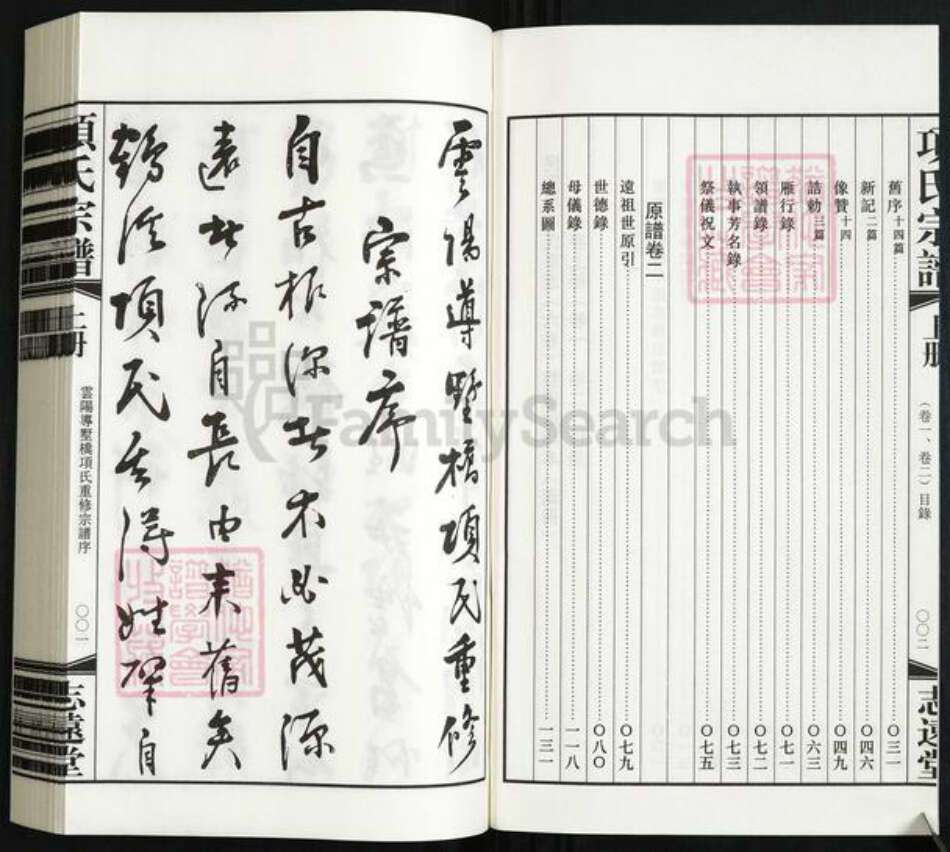 項氏宗譜
上册
（卷一、卷二）目錄
〇〇二
志遠堂
舊序十四篇……〇三一
新記二篇……〇四六
像贊十四……〇四九
誥勅三篇……〇六三
雁行錄……〇七一
領譜錄……〇七二
執事芳名錄……〇七三
祭儀祝文……〇七五
原譜卷二
遠祖世原引……〇七九
世德錄……〇八〇
母儀錄……一一八
總系圖……一三一
雲陽導墅橋項氏重修
宗譜序
自古根深者木必茂源
遠者流自長由來舊矣
鶴溪項氏其得姓肇自
項氏宗譜
上册
雲陽導墅橋項氏重修宗譜序
〇〇一
志遠堂
FamilySearch